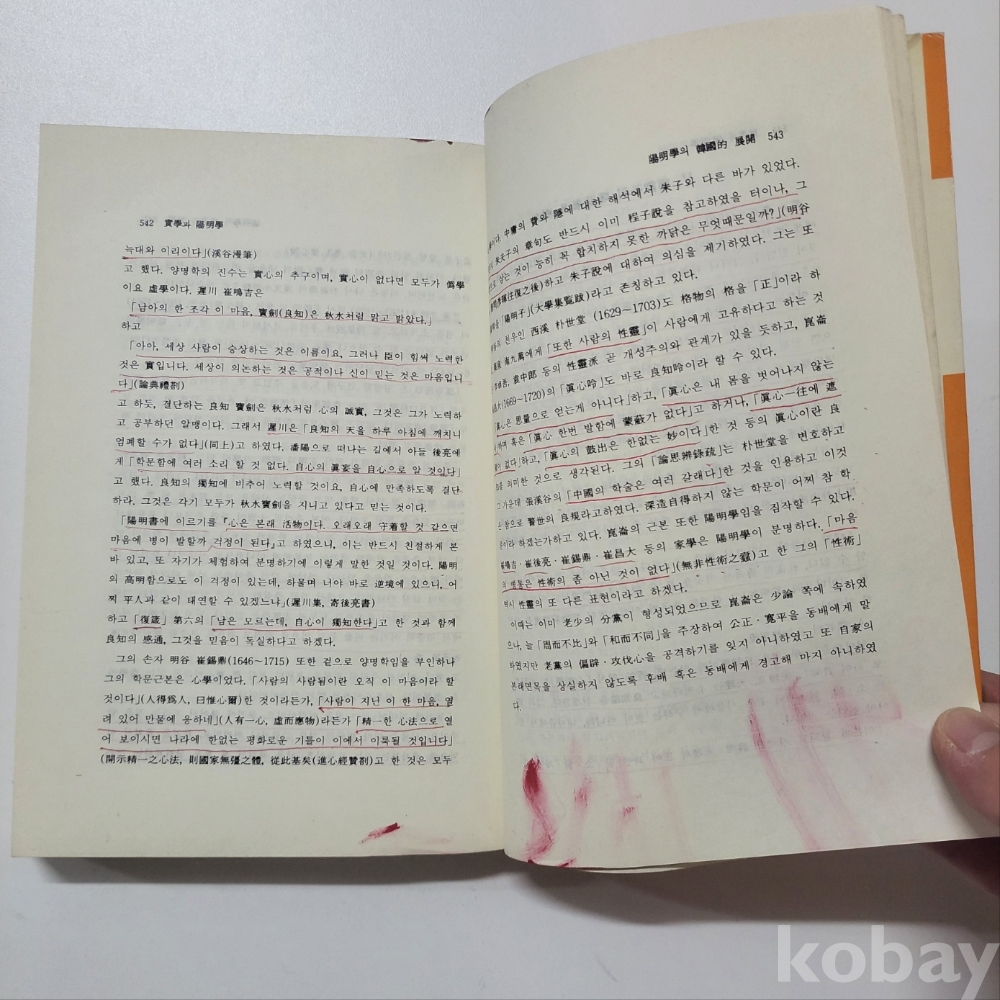 542 實學과 陽明學
늑대와 이리이다」(溪谷漫筆)
고 했다. 양명학의 진수는 實心의 추구이며, 實心이 없다면 모두가 僞學
이요 虛學이다. 遲川 崔鳴吉은
「남아의 한 조각 이 마음, 寶劍(良知)은 秋水처럼 맑고 밝았다.」
하고
「아아, 세상 사람이 숭상하는 것은 이름이요, 그러나 臣이 힘써 노력한
것은 實입니다. 세상이 의논하는 것은 공적이나 신이 믿는 것은 마음입니
다」(論典禮劄)
고 하듯, 결단하는 良知 寶劍은 秋水처럼 心의 誠實, 그것은 그가 노력하
고 공부하던 알맹이다. 그래서 遲川은 「良知의 天을 하루 아침에 깨치니
엄폐할 수가 없다」(同上)고 하였다. 瀋陽으로 떠나는 길에서 아들 後亮에
게 「학문함에 여러 소리 할 것 없다. 自心의 眞妄을 自心으로 알 것이다」
고 했다. 良知의 獨知에 비추어 노력할 것이요, 自心에 만족하도록 결단
하라. 그것은 각기 모두가 秋水寶劍을 지니고 있다고 믿는 것이다.
「陽明書에 이르기를 『心은 본래 活物이다. 오래오래 守着할 것 같으면
마음에 병이 발할까 걱정이 된다』고 하였으니, 이는 반드시 친절하게 본
바 있고, 또 자기가 체험하여 분명하기에 이렇게 말한 것일 것이다. 陽明
의 高明함으로도 이 걱정이 있는데, 하물며 너야 바로 逆境에 있으니, 어
찌 平人과 같이 태연할 수 있겠느냐」(遲川集, 寄後亮書)
하고 「復箴」 第六의 「남은 모르는데, 自心이 獨知한다」고 한 것과 함께
良知의 感通, 그것을 믿음이 독실하다고 하겠다.
그의 손자 明谷 崔錫鼎(1646~1715) 또한 겉으로 양명학임을 부인하나
그의 학문근본은 心學이었다. 「사람의 사람됨이란 오직 이 마음이라 할
것이다」(人得爲人, 曰惟心爾)한 것이라든가, 「사람이 지닌 이 한 마음, 열
려 있어 만물에 응하네」(人有一心, 虛而應物)라든가 「精一한 心法으로 열
어 보이시면 나라에 한없는 평화로운 기틀이 이에서 이룩될 것입니다」
(開示精一之心法, 則國家無彊之體, 從此基矣(進心經贊劄)고 한 것은 모두
陽明學의 韓國的 展開 543
다. 中庸의 費와 隱에 대한 해석에서 朱子와 다른 바가 있었다.
朱夫子의 章句도 반드시 이미 程子說을 참고하였을 터이나, 그
것이 능히 꼭 합치하지 못한 까닭은 무엇때문일까?」(明谷
하고 朱子說에 대하여 의심을 제기하였다. 그는 또
「陽明子」(大學集覧跋)라고 존칭하고 있다.
전우인 西溪 朴世堂 (1629~1703)도 格物의 格을 「正」이라 하
南九萬에게 「또한 사람의 性靈」이 사람에게 고유하다고 하는 것
袁中郎 등의 性靈派 곧 개성주의와 관계가 있을 듯하고, 崑崙
(1669~1720)의 「眞心吟」도 바로 良知吟이라 할 수 있다.
은 思量으로 얻는게 아니다」하고, 「眞心은 내 몸을 벗어나지 않는
혹은 「眞心 한번 발함에 蒙蔽가 없다」고 하거나, 「眞心一往에 遮
없다」하고, 「眞心의 鼓出은 한없는 妙이다」한 것 등의 眞心이란 良
의미한 것으로 생각된다. 그의 「論思辨錄疏」는 朴世堂을 변호하고
가운데 張溪谷의 「中國의 학술은 여러 갈래다」한 것을 인용하고 이것
참으로 警世의 良規라고하였다. 深造自得하지 않는 학문이 어찌 참 학
이라 하겠는가하고 있다. 崑崙의 근본 또한 陽明學임을 짐작할 수 있다.
崔鳴吉·崔後亮·崔錫鼎·崔昌大 등의 家學은 陽明學이 분명하다. 「마음
의 병통은 性術의 좀 아닌 것이 없다」(無非性術之蠹)고 한 그의 「性術」
역시 性靈의 또 다른 표현이라고 하겠다.
이때는 이미 老少의 分黨이 형성되었으므로 崑崙은 少論 쪽에 속하였
으나, 늘 「周而不比」와 「和而不同」을 주장하여 公正·寬平을 동배에게 말
하였지만 老黨의 偏辟·攻伐心을 공격하기를 잊지 아니하였고 또 自家의
본래면목을 상실하지 않도록 후배 혹은 동배에게 경고해 마지 아니하였
다.
kobay